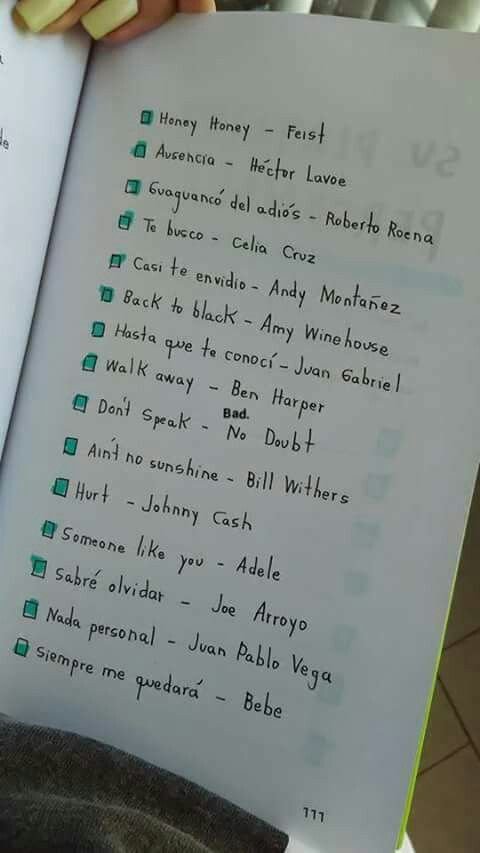 Honey Honey - Feist
Ausencia - Héctor Lavoe
Guaguancó del adiós - Roberto Roena
Te busco - Celia Cruz
Casi te envidio - Andy Montañez
Back to black - Amy Winehouse
Hasta que te conocí - Juan Gabriel
Walk away - Ben Harper
Bad.
Don't Speak - No Doubt
Ain't no sunshine - Bill Withers
Hurt - Johnny Cash
Someone like you - Adele
Sabré olvidar - Joe Arroyo
Nada personal - Juan Pablo Vega
Siempre me quedará - Bebe
111